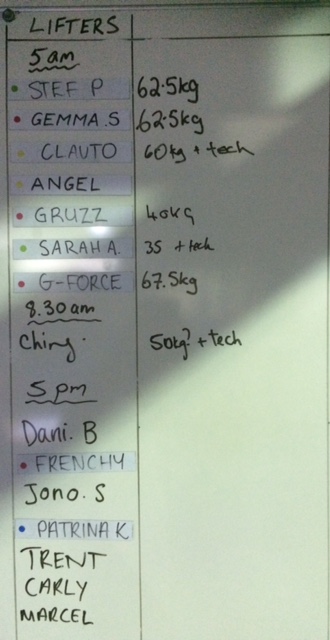 LIFTERS
5am
STEF P 62.5kg
GEMMA.S 62.5kg
CLAUTO 60kg + tech
ANGEL
GRUZZ 40kg
SARAH A. 35 + tech
G-FORCE 67.5kg
8.30am
Ching. 50kg? + tech
5pm
Dani. B
FRENCHY
Jono. S
PATRINA K
TRENT
CARLY
MARCEL